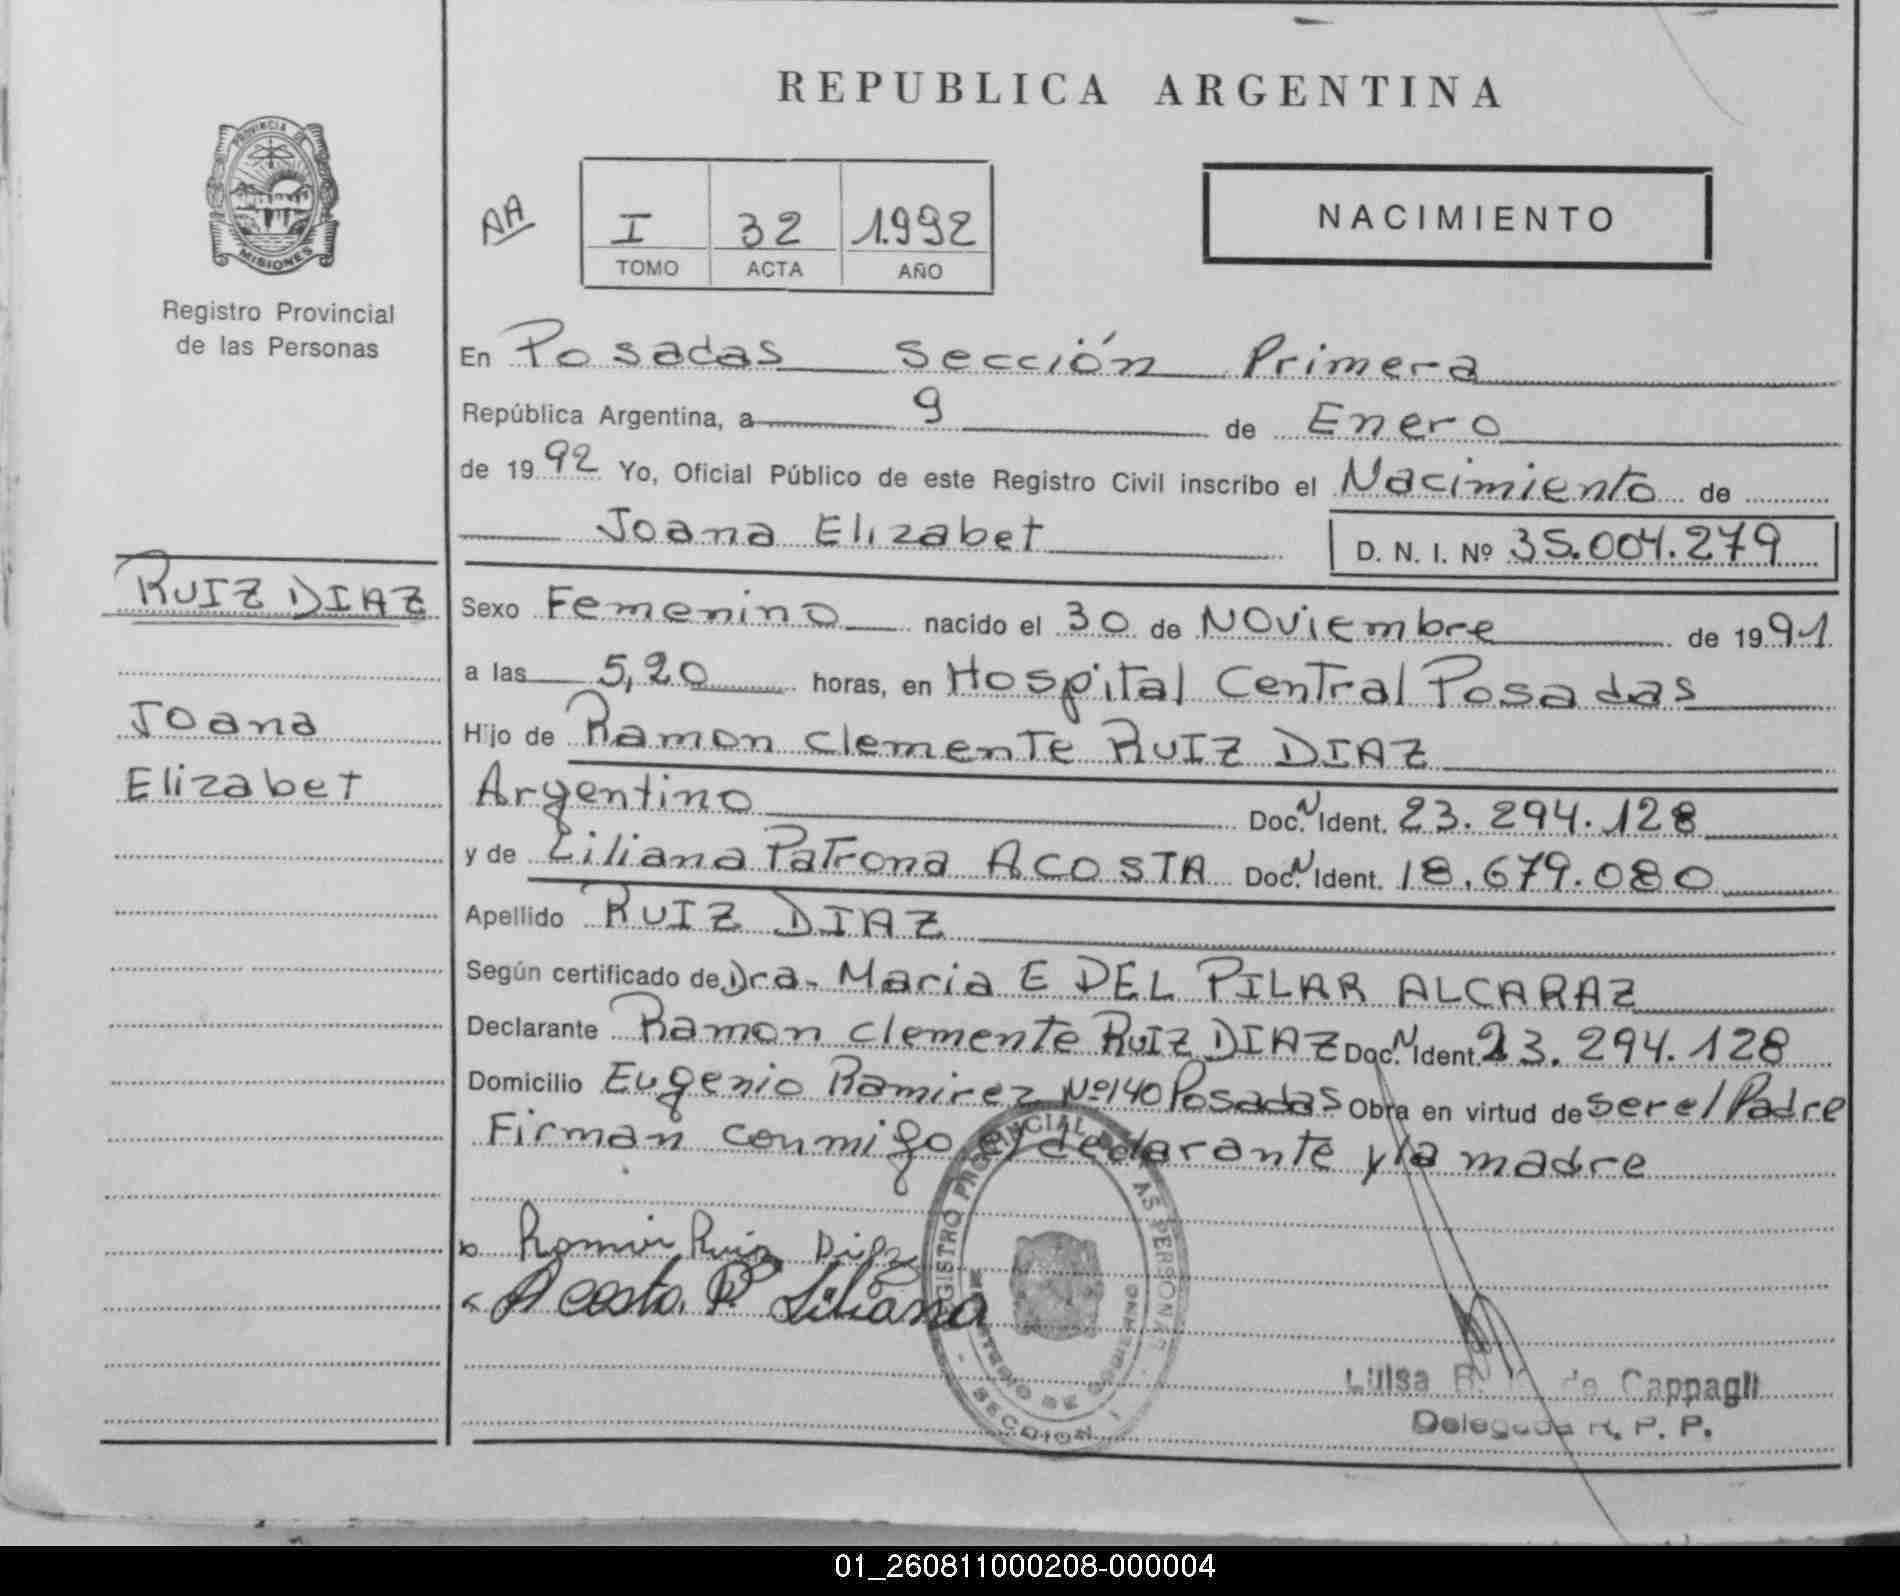 REPUBLICA ARGENTINA
PROVINCIA DE
MISIONES
Registro Provincial
de las Personas
AA
I 32 1.992
TOMO ACTA AÑO
NACIMIENTO
En Posadas sección Primera
República Argentina, a 9 de Enero
de 1992 Yo, Oficial Público de este Registro Civil inscribo el Nacimiento de
Joana Elizabet D. N. I. Nº 35.004.279
RUIZ DIAZ
Joana
Elizabet
Sexo Femenino nacido el 30 de Noviembre de 1991
a las 5,20 horas, en Hospital Central Posadas
Hijo de Ramon Clemente RUIZ DIAZ
Argentino Doc. N Ident. 23.294.128
y de Liliana Patrona ACOSTA Doc. N Ident. 18.679.080
Apellido RUIZ DIAZ
Según certificado de Dra- Maria E DEL PILAR ALCARAZ
Declarante Ramon Clemente RUIZ DIAZ Doc. N Ident. 23.294.128
Domicilio Eugenio Ramirez Nº140 Posadas Obra en virtud de ser el Padre
Firman conmigo el declarante y la madre
Ruiz Diaz
Acosta. P. Liliana
REGISTRO PROVINCIAL DE LAS PERSONAS
MINISTERIO DE GOBIERNO
SECCION 1
Luisa B. de Cappagli
Delegada R. P. P.
01_260811000208-000004